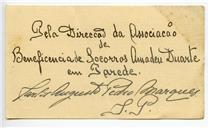 Pela Direcção da Associação
de
Beneficencia de Socorros Amadeu Duarte
em Parede.
Augusto Pedro Marques